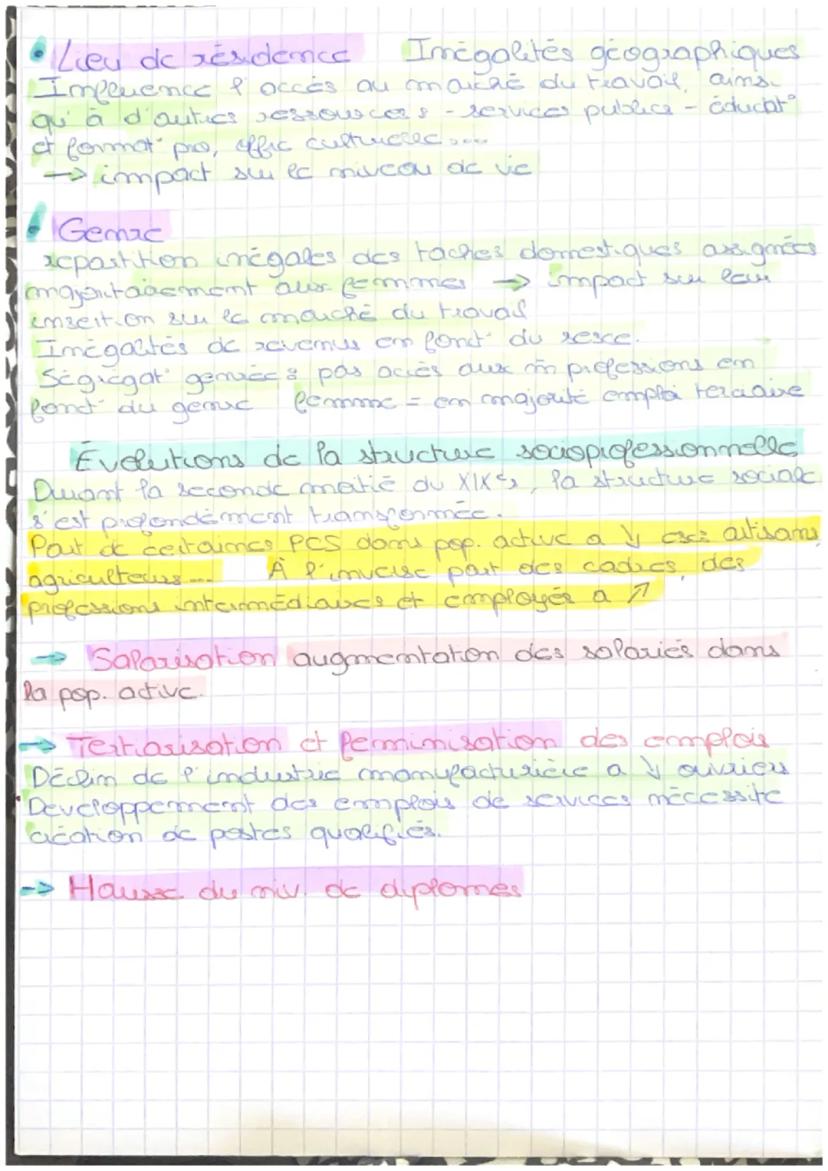 • Lieu de résidence Inégalités géographiques
Influence l'accès au marché du travail, ainsi
qu'à d'autres ressources - services publics - éducat°
et format° pro, offre culturelle...
→ impact sur le niveau de vie
• Genre
répartition inégales des taches domestiques assignées
majoritairement aux femmes → impact sur leur
insertion sur le marché du travail
Inégalités de revenus en fonct° du sexe.
Ségrégat° genrée : pas accès aux m̂ professions en
fonct° du genre femme = en majorité emploi tertiaire
Évolutions de la structure socioprofessionnelle
Durant la seconde moitié du XIXe s, la structure sociale
s'est profondément transformée.
Part de certaines PCS dans pop. active a ↓ ex: artisans,
agriculteurs... À l'inverse part des cadres, des
professions intermédiaires et employés a ↗
→ Salarisation augmentation des salariés dans
la pop. active.
→ Tertiarisation et féminisation des emplois
Déclin de l'industrie manufacturière a ↓ ouvriers
Developpement des emplois de services nécessite
création de postes qualifiés.
→ Hausse du niv. de diplomes